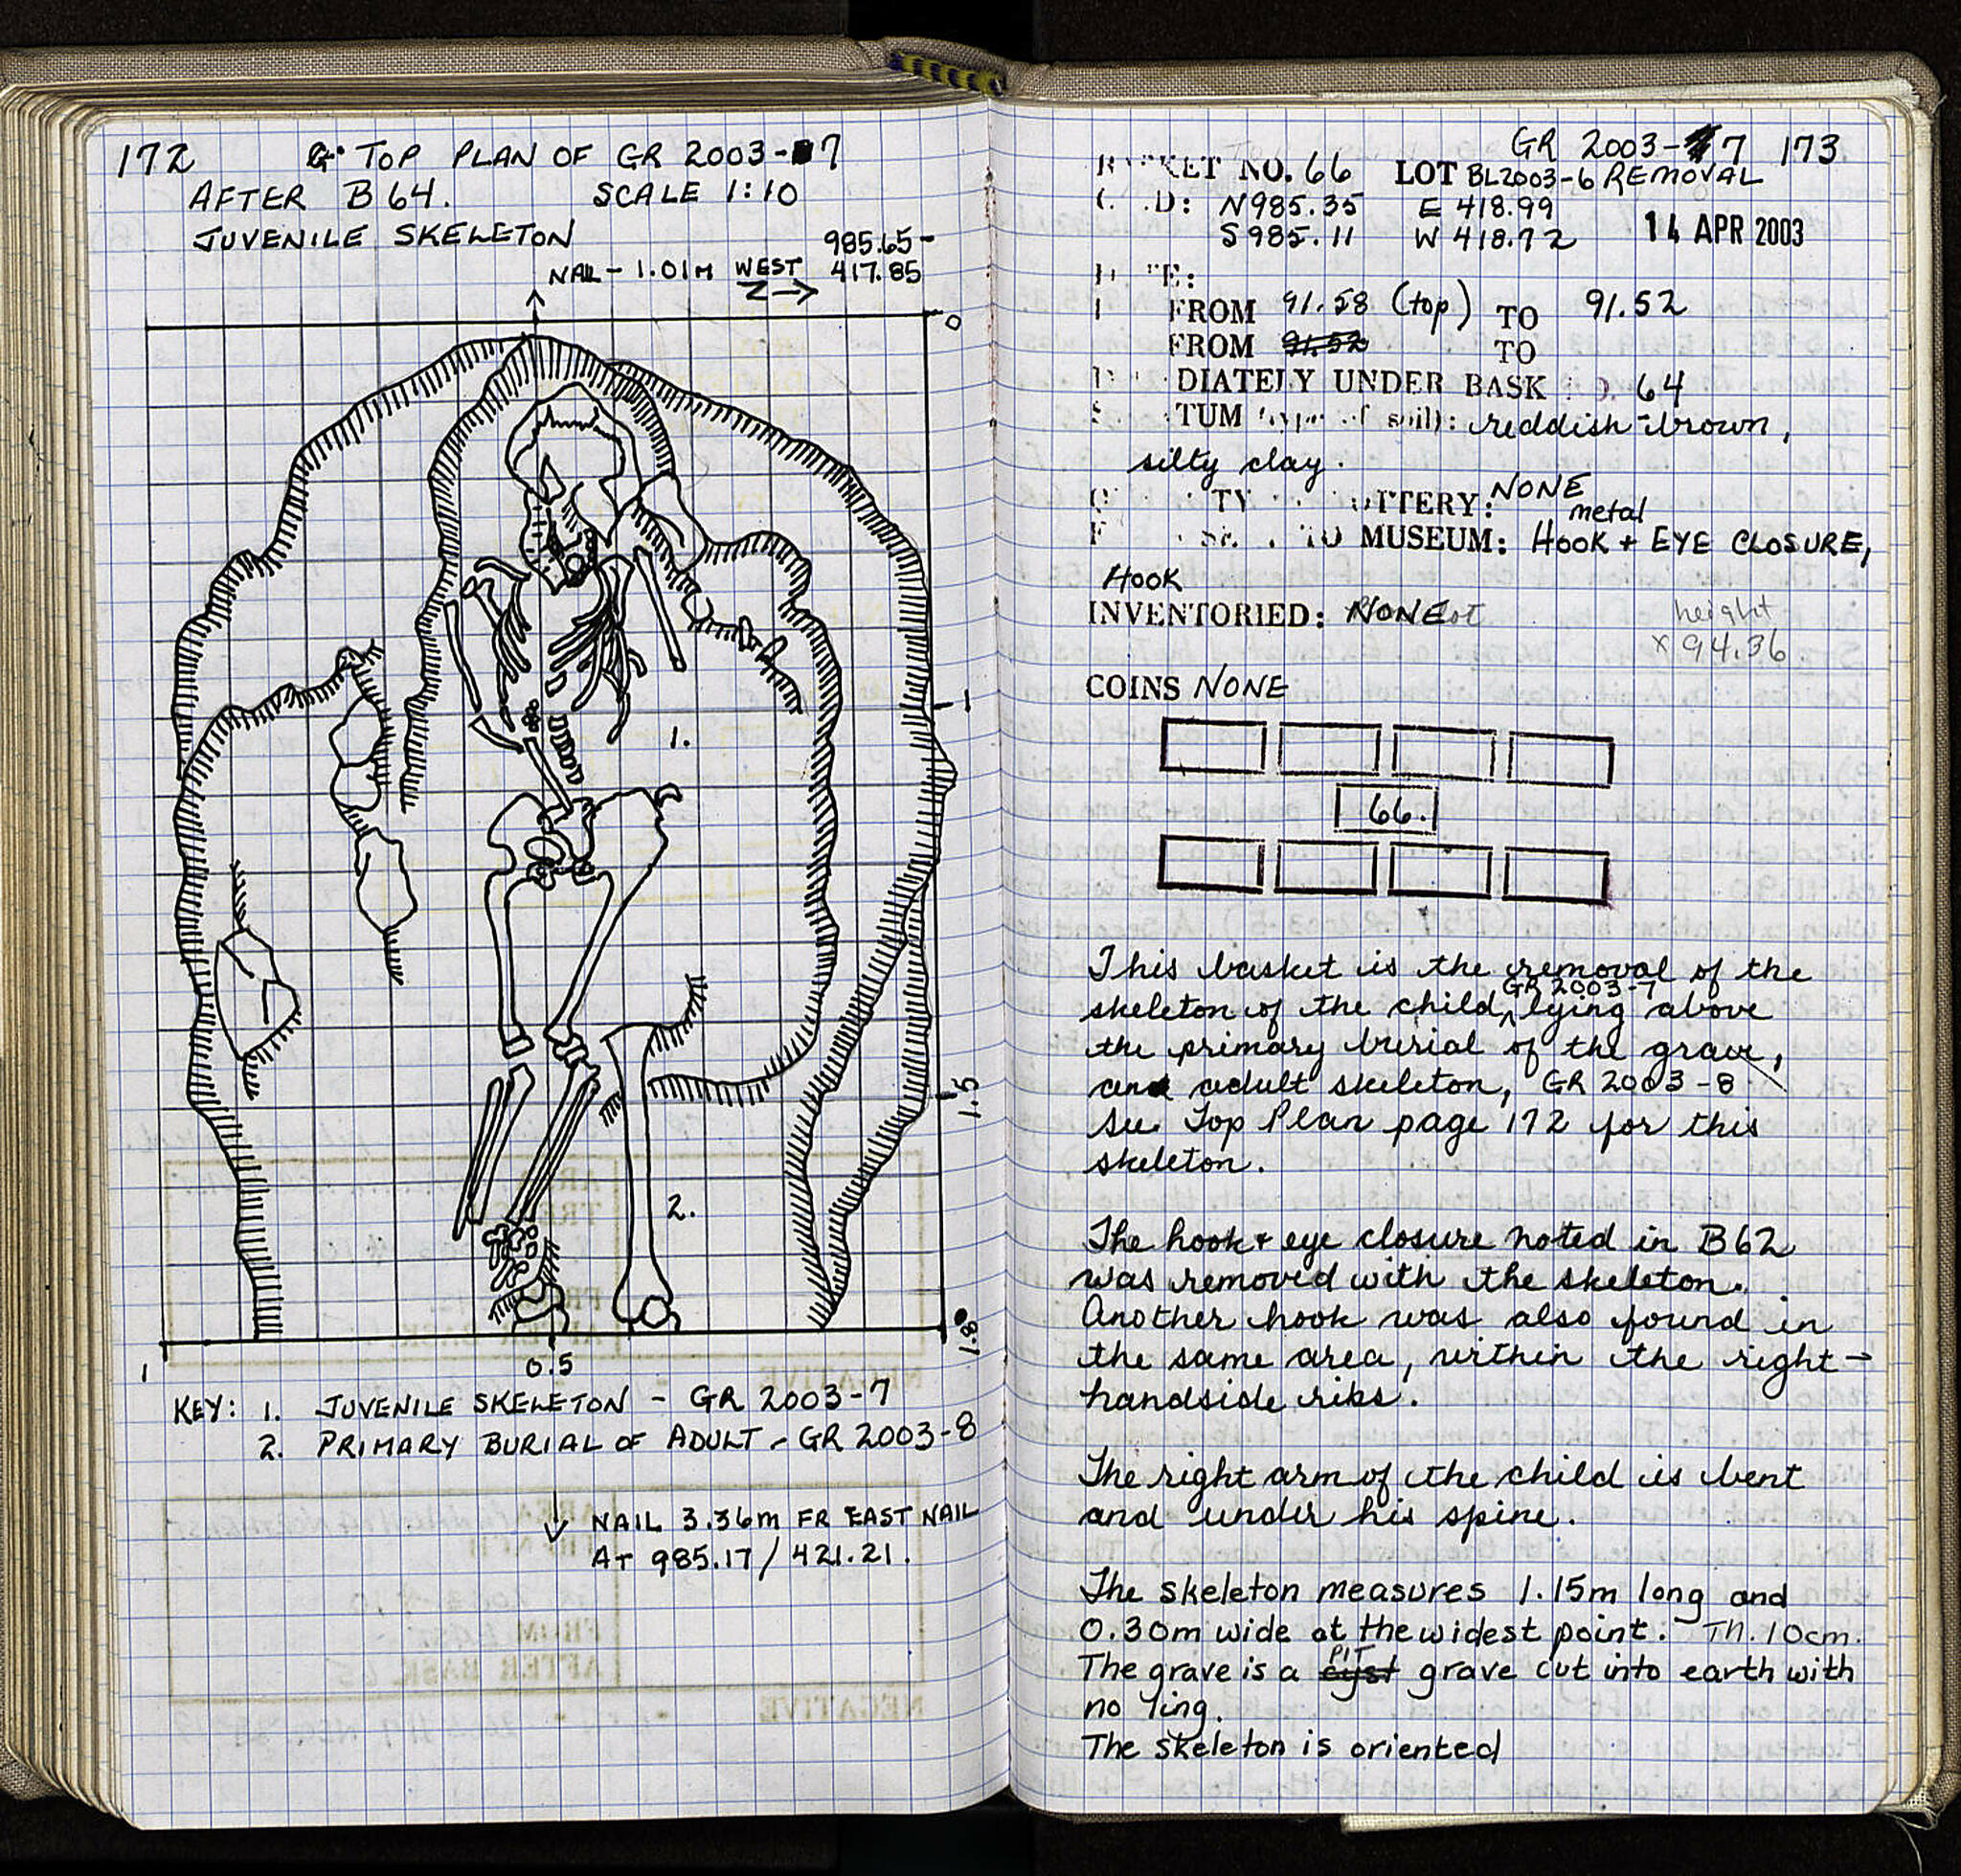 172 TOP PLAN OF GR 2003-7
AFTER B64. SCALE 1:10
JUVENILE SKELETON 985.65-
NAIL - 1.01M WEST 417.85
Z→
0
1.
1
1.5
2.
1.8
1 0.5
KEY: 1. JUVENILE SKELETON - GR 2003-7
2. PRIMARY BURIAL OF ADULT - GR 2003-8
NAIL 3.36m FR EAST NAIL
AT 985.17/421.21.
GR 2003-7 173
KET NO. 66 LOT BL2003-6 REMOVAL
D: N985.35 E 418.99
S985.11 W 418.72 14 APR 2003
E:
FROM 91.58 (top) TO 91.52
FROM 91.52 TO
DIATELY UNDER BASK 64
TUM soil): reddish-brown,
silty clay.
TY TTERY: NONE
metal
MUSEUM: HOOK + EYE CLOSURE,
HOOK
INVENTORIED: NONE height
x 94.36
COINS NONE
66.
This basket is the removal of the
skeleton of the child, GR 2003-7 lying above
the primary burial of the grave,
an adult skeleton, GR 2003-8
See Top Plan page 172 for this
skeleton.
The hook + eye closure noted in B62
was removed with the skeleton.
Another hook was also found in
the same area, within the right-
handside ribs.
The right arm of the child is bent
and under his spine.
The skeleton measures 1.15m long and
0.30m wide at the widest point. TH. 10cm.
The grave is a cyst PIT grave cut into earth with
no ling.
The skeleton is oriented